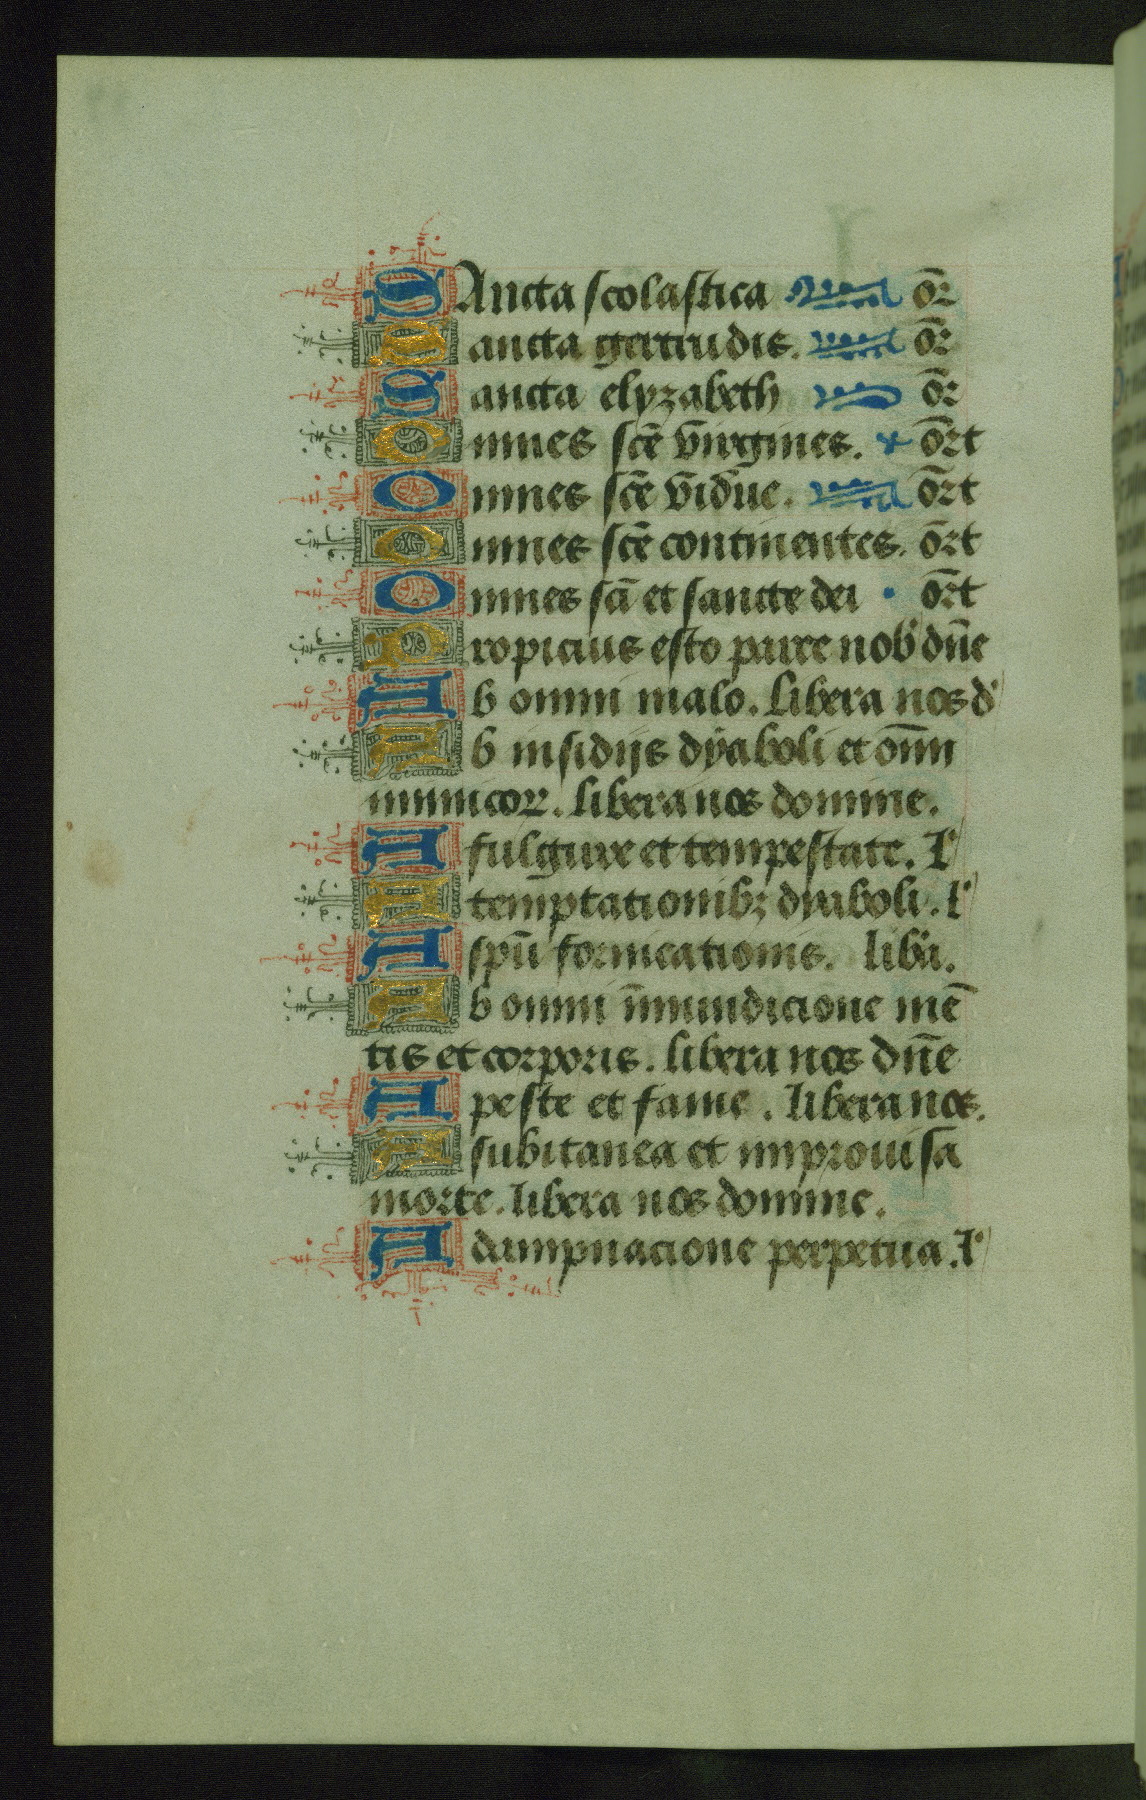 SAncta scolastica or
Sancta gertrudis. or
Sancta elyzabeth or
Omnes scē virgines. ōrt
Omnes scē vidue. ōrt
Omnes scē continentes. ōrt
Omnes sci et sancte dei · ōrt
Propicius esto parce nob dn̄e
Ab omni malo. libera nos d
Ab insidijs dyaboli et om̄i
inimicoꝝ. libera nos domine.
A fulgure et tempestate. l
A temptationibꝫ dyaboli. l
A spū fornicationis. liba.
Ab omni īmundicione mē
tis et corporis. libera nos dn̄e
A peste et fame. libera nos.
A subitanea et improuisa
morte. libera nos domine.
A dampnacione perpetua. l